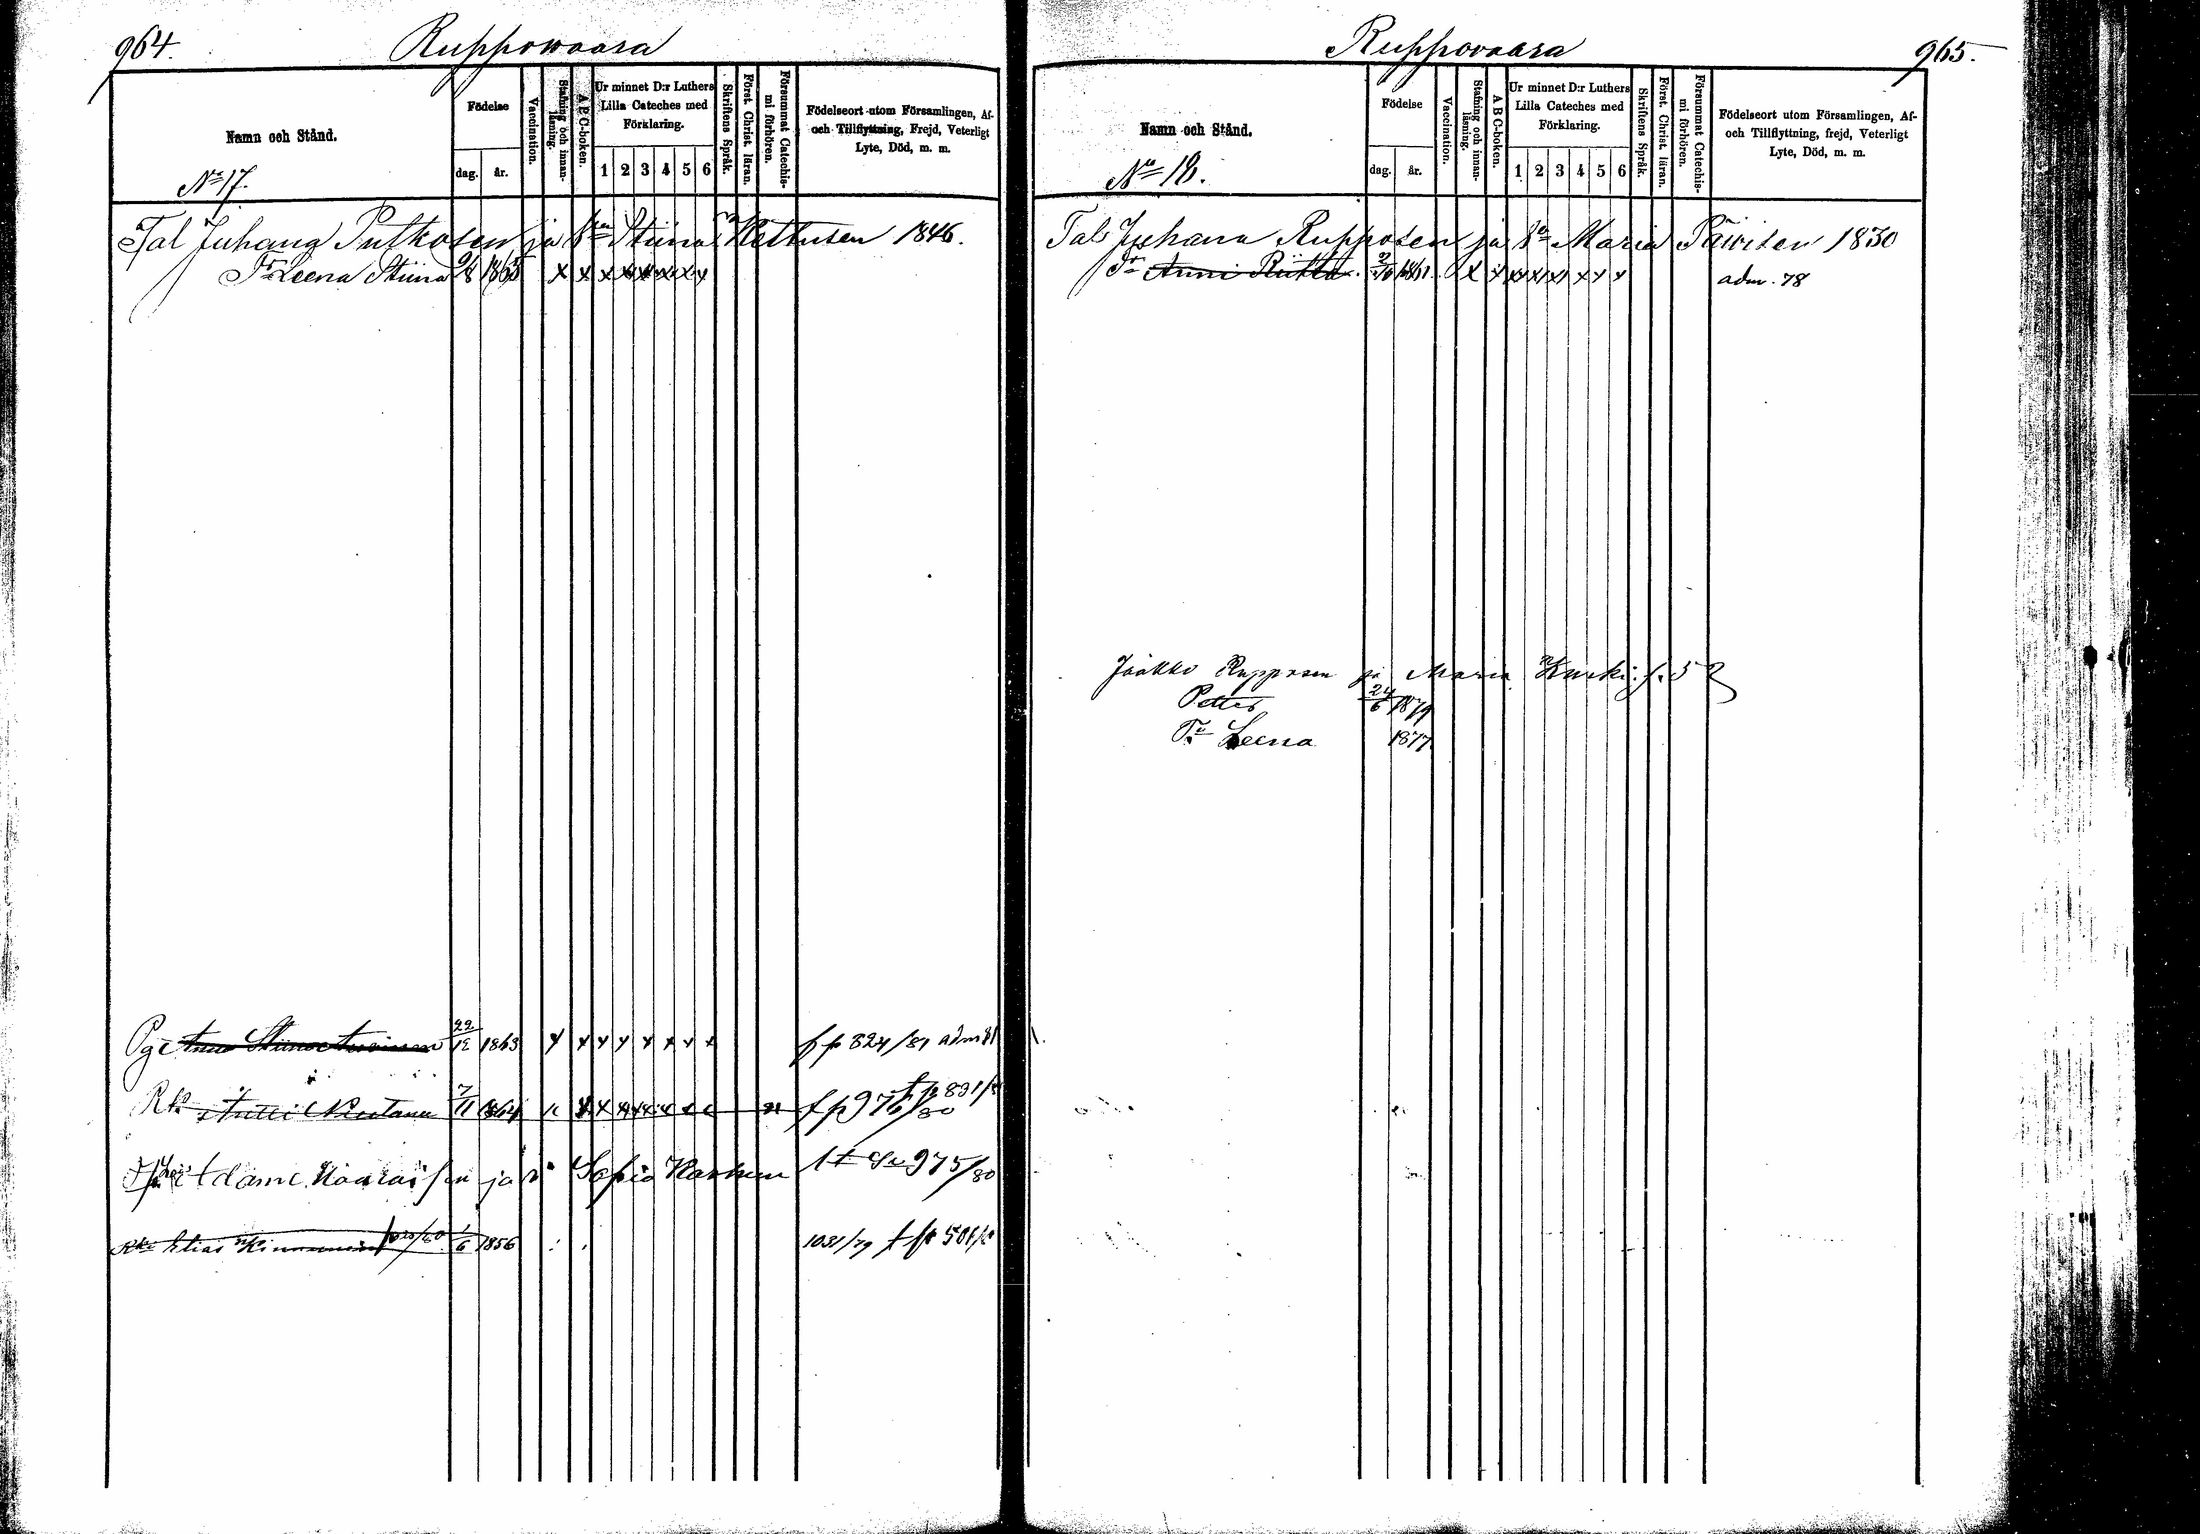 964.
Ruppowaara
Namn och Stånd.
No 17.
Födelse
dag.
år.
Vaccination.
Stafning och innanläsning.
A B C-boken.
Ur minnet D:r Luthers Lilla Cateches med Förklaring.
1 2 3 4 5 6
Skriftens Språk.
Först. Christ. läran.
Försummat Catechismi förhören.
Födelseort utom Församlingen, Af- och Tillflyttning, Frejd, Veterligt Lyte, Död, m. m.
Tal Juhana Putkosen ja Stiina Kettusen 1846.
Tr Leena Stiina 9/8 1865 x x x x x x x x
Pge Anna Stiina 22/12 1863 x x x x x x x x f p 824/81 adm 81
Rk Antti 7/11 1864 f p 976/80
Adam ja Sofia 975/80
Rk Elias 1/6 1856 1031/79
Ruppovaara
965.
Namn och Stånd.
No 18.
Födelse
dag.
år.
Vaccination.
Stafning och innanläsning.
A B C-boken.
Ur minnet D:r Luthers Lilla Cateches med Förklaring.
1 2 3 4 5 6
Skriftens Språk.
Först. Christ. läran.
Försummat Catechismi förhören.
Födelseort utom Församlingen, Af- och Tillflyttning, frejd, Veterligt Lyte, Död, m. m.
Tal Juhana Rupposen ja Maria Päivisen 1830
Tr Anni Riitta 1861 x x x x x x x x adm. 78
Jaakko Rupposen ja Maria Kurki
Petter 24/6 1879
Tr Leena 1877